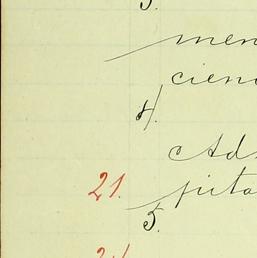 3.
men
cien
4.
Ad
21.
puta
5.